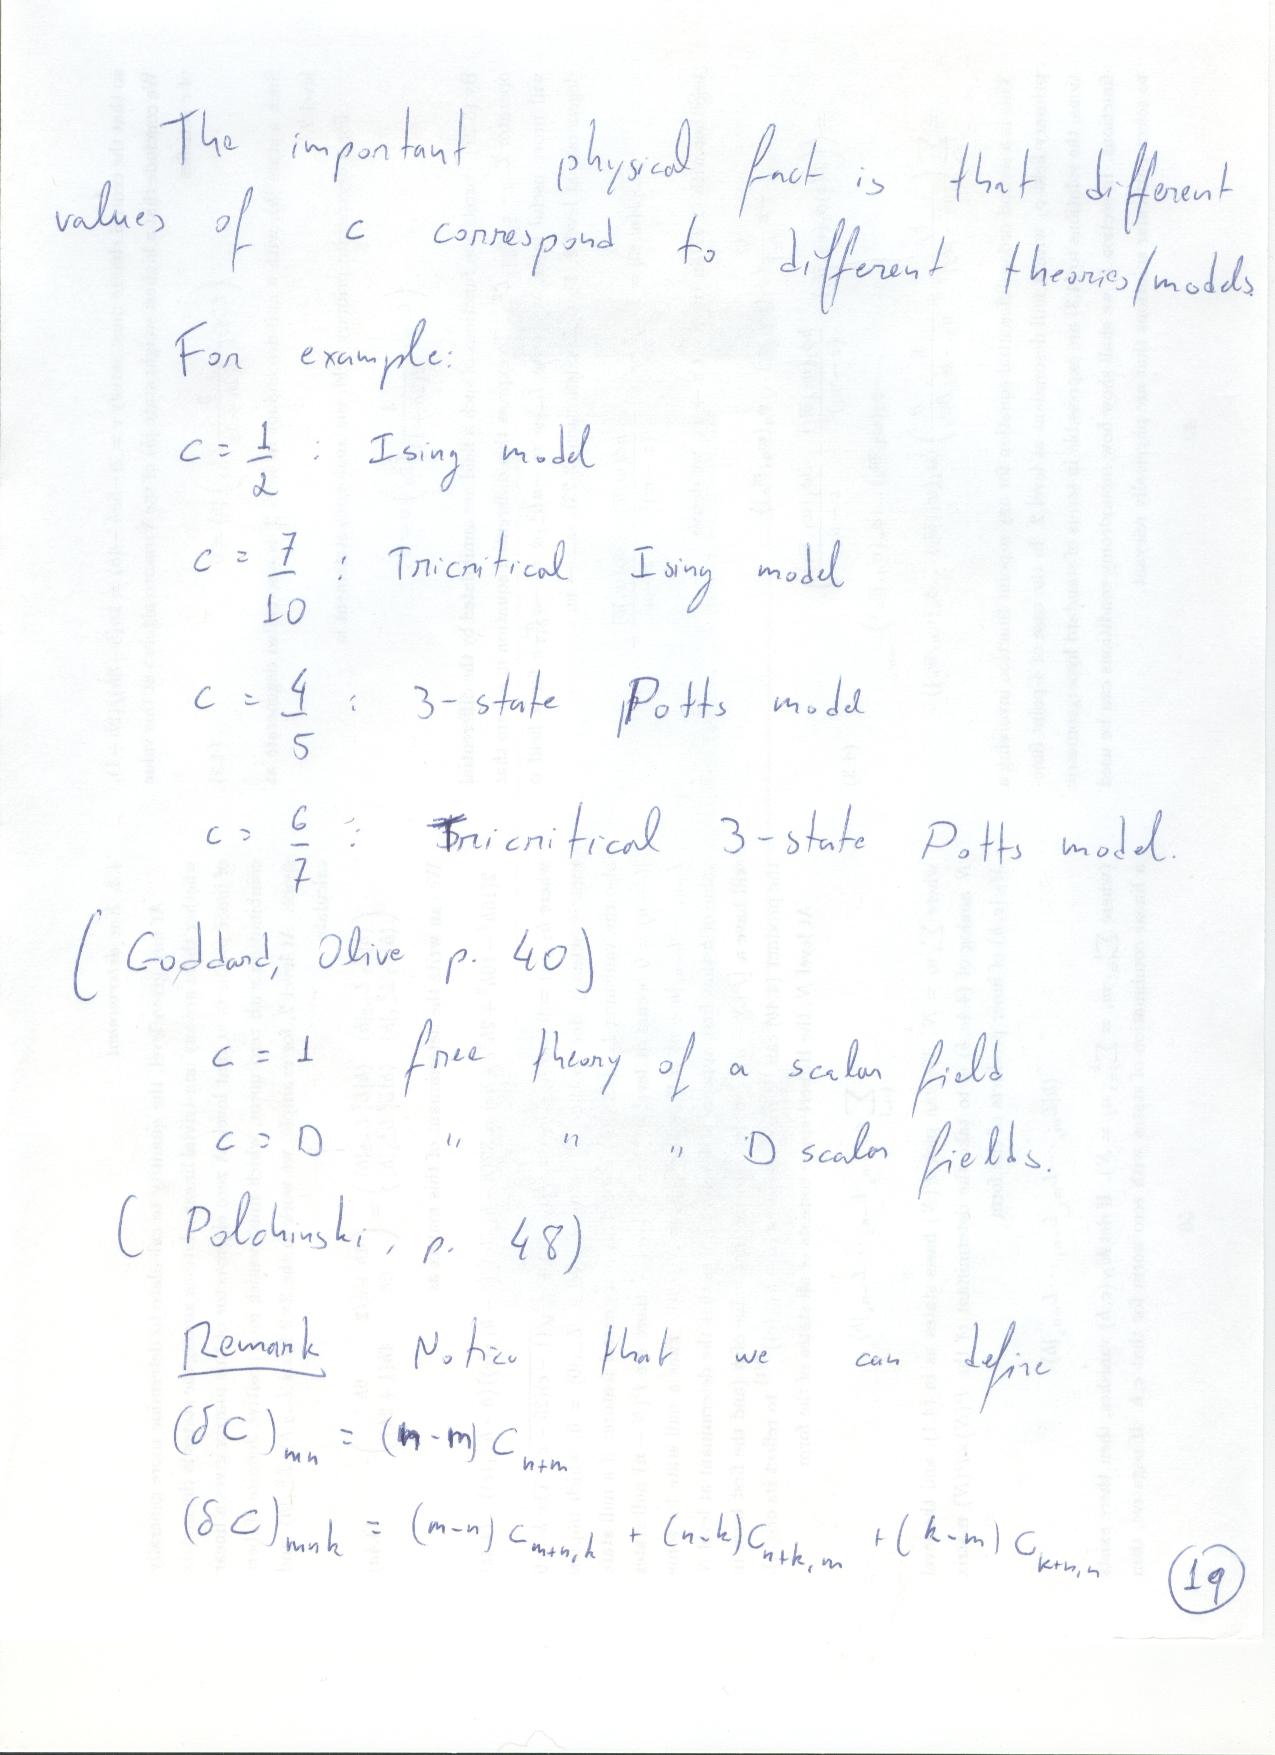 The important physical fact is that different
values of c correspond to different theories/models.
For example:
c = 1/2 : Ising model
c = 7/10 : Tricritical Ising model
c = 4/5 : 3-state Potts model
c = 6/7 : Tricritical 3-state Potts model.
(Goddard, Olive p. 40)
c = 1 free theory of a scalar field
c = D " " " D scalar fields.
(Polchinski, p. 48)
Remark Notice that we can define
(δC)_{mn} = (n-m) C_{n+m}
(δC)_{mnk} = (m-n) C_{m+n,k} + (n-k) C_{n+k,m} + (k-m) C_{k+m,n}
19